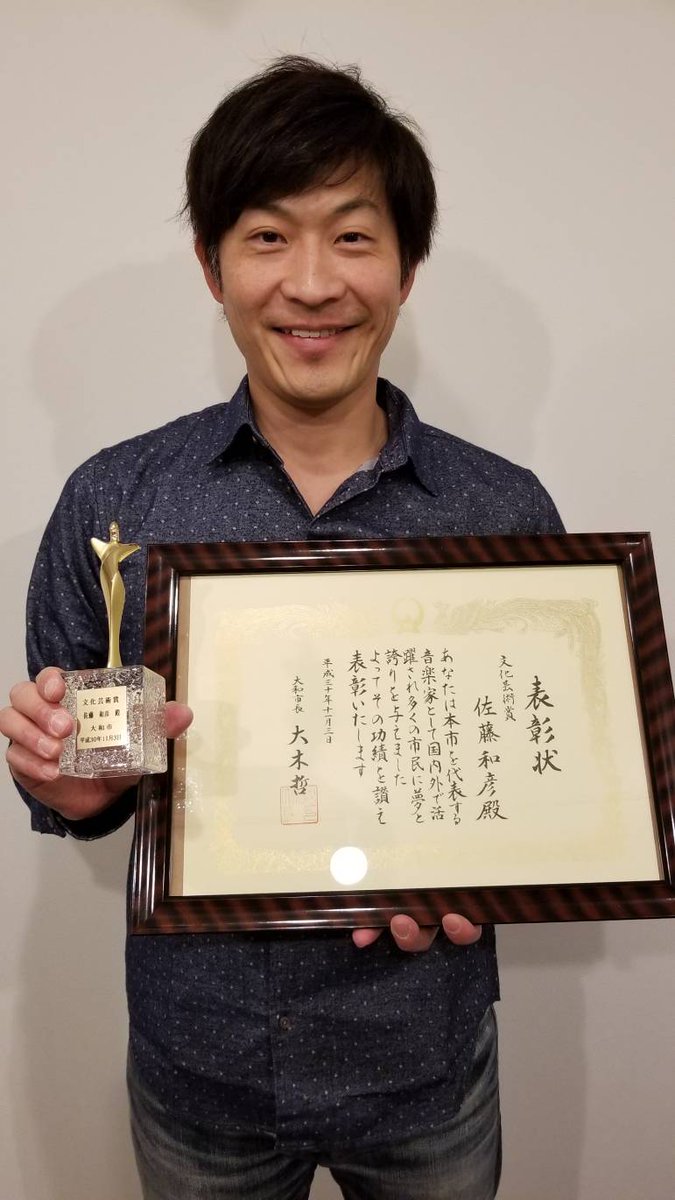 表彰状
文化芸術賞
佐藤和彦殿
あなたは本市を代表する
音楽家として国内外で活
躍され多くの市民に夢と
誇りを与えました
よってその功績を讃え
表彰いたします
平成三十年十一月三日
大和市長 大木哲
文化芸術賞
佐藤 和彦 殿
大和市
平成30年11月3日